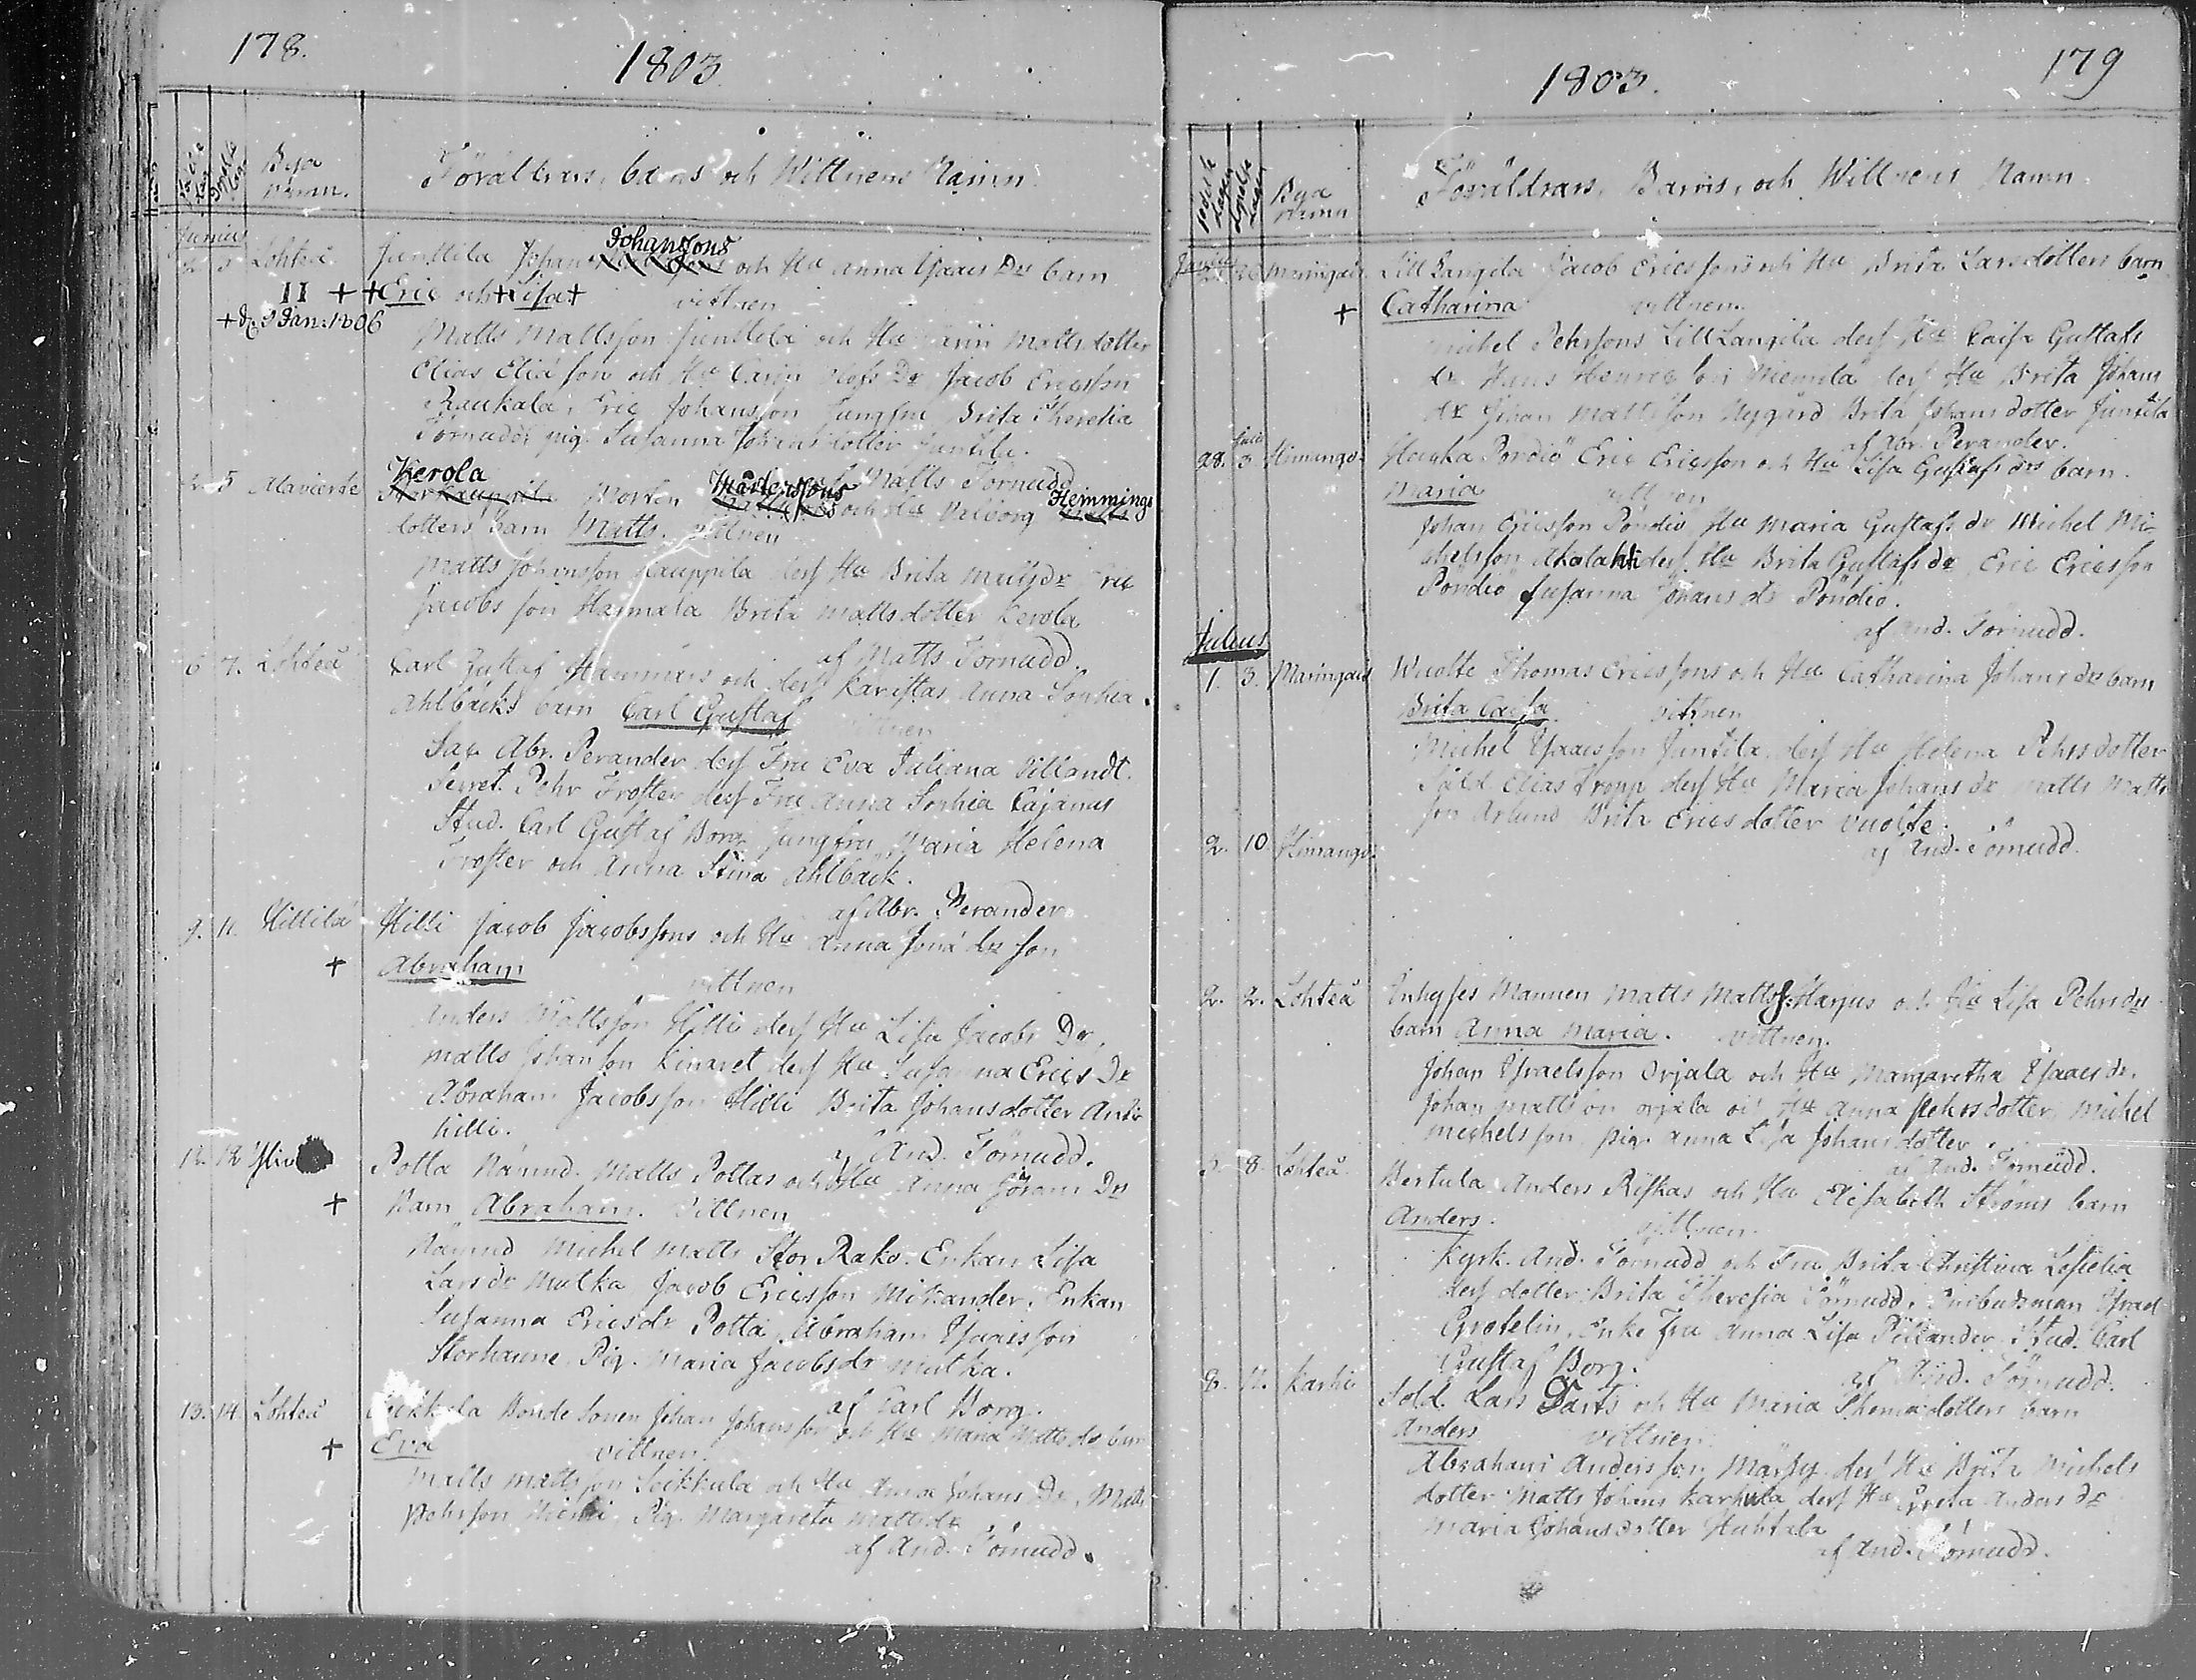 178.
1803
Bya
Namn.
Föräldrars, barns och Wittnens Namn.
Junius
2. 3. Lohteå Junttila Johan Johansons och Hu Anna Isaacs Drs barn
II + + Eric och + Lisa + vittnen
+ d. 9 Jan. 1806
Matts Mattsson Junttila och Hu Carin Mattsdotter
Elias Eliæ son och Hu Carin Dr Jacob Ericsson
Raukala, Eric Johansson Jungfru Brita Theresia
Törnudd, pig. Susanna Johansdotter Juntila.
af Matts Törnudd
2. 5 Alavierte Kerola Morten Mårtenssons och Hu Valborg Hemmings
dotters barn Matts. vittnen
Matts Johansson Kauppila dess Hu Brita Mattsdr Eric
Jacobsson Hannula Brita Mattsdotter Kerola
af Matts Törnudd.
6 7. Lohteå Carl Gustaf Hammars och dess Kæristas Anna Sophia
Ahlbäcks barn Carl Gustaf vittnen
Sac. Abr. Perander dess Fru Eva Juliana Pillandt.
Secret. Pehr Froster dess Fru Anna Sophia Cajanus
Stud. Carl Gustaf Borg Jungfru Maria Helena
Froster och Anna Stina Ahlbäck.
af Abr. Perander
9. 11. Hillilä Hilli Jacob Jacobssons och Hu Anna Jonæ dr son
+ Abraham vittnen
Anders Mattsson Hilli dess Hu Lisa Jacobs Dr,
Matts Johansson Kinaret dess Hu Susanna Erics Dr
Abraham Jacobsson Hilli Brita Johansdotter Antti
hilli.
af And. Törnudd.
12. 12 Yliv Potta Nämnd. Matts Pottas och Hu Anna Görans Drs
+ Barn Abraham. Vittnen
Nämnd Michel Matts Stor Rako. Enkan Lisa
Lars dr Mutka Jacob Ericsson Mikander. Enkan
Susanna Ericsdr Potta, Abraham Isaacsson
Storhanne. Pig. Maria Jacobsdr Mutka.
af Carl Borg.
13. 14. Lohteå Seikkula Bonde Sonen Johan Johansson och Hu Maria Mattsdrs barn
+ Eva vittnen.
Matts Mattsson Seikkula och Hu Anna Johans Dr, Matts
Pehrsson Niemi Pig. Margareta Mattsdr
af And. Törnudd.
179
1803.
Bya
Namn
Föräldrars, Barns, och Wittnens Namn.
Junius
26 Maringais Lill Langila Jacob Ericssons och Hu Brita Larsdotters barn
+ Catharina vittnen.
Michel Pehrssons Lill Langila dess Hu Caisa Gustafs
dr. Hans Henricsson Niemelä dess Hu Brita Johans
dr Johan Mattsson Nygård Brita Johansdotter Juntila
af Abr. Perander.
28. Julii 3. Himango Hauka Pöndiö Eric Ericsson och Hu Lisa Gustafs drs barn.
Maria vittnen
Johan Ericsson Pöndiö Hu Maria Gustafs dr Michel Mi-
chelsson Ahalahti dess Hu Brita Gustafs dr Eric Ericsson
Pöndiö Susanna Johans dr Pöndiö.
af And. Törnudd.
Julius
1. 3. Maringais Wuolte Thomas Ericssons och Hu Catharina Johans drs barn
Brita Caisa vittnen
Michel Isaacsson Juntila dess Hu Helena Pehrsdotter
Sold Elias Kropp dess Hu Maria Johansdr Matts Matts
son Arlund Brita Ericsdotter Vuolte.
af And. Törnudd.
2. 10 Himango.
2. 2. Lohteå Inhyses Mannen Matts Matts s. Harjus och Hu Lisa Pehrsdrs
barn Anna Maria. vittnen.
Johan Israelsson Orjala och Hu Margaretha Isaacsdr.
Johan Mattsson Orjala och Hu Anna Pehrsdotter, Michel
Michelsson, pig. Anna Lisa Johansdotter
af And. Törnudd.
5. 8. Lohteå. Bertula Anders Riskas och Hu Elisabeth Ströms barn
Anders. vittnen.
Kyrk. And. Törnudd och Fru Brita Christina Lostelia
dess dotter Brita Theresia Törnudd. Ombudsman Israel
Grotelin, Enke Fru Anna Lisa Pillander. Stud. Carl
Gustaf Borg.
af And. Törnudd.
8. 11. Karhi Sold. Lars Darts och Hu Maria Thomædotters barn
Anders vittnen.
Abraham Andersson Märsy dess Hu Brita Michels
dotter Matts Johans Karhula dess Hu Greta Anders dr
Maria Johansdotter Huhtala
af And. Törnudd.